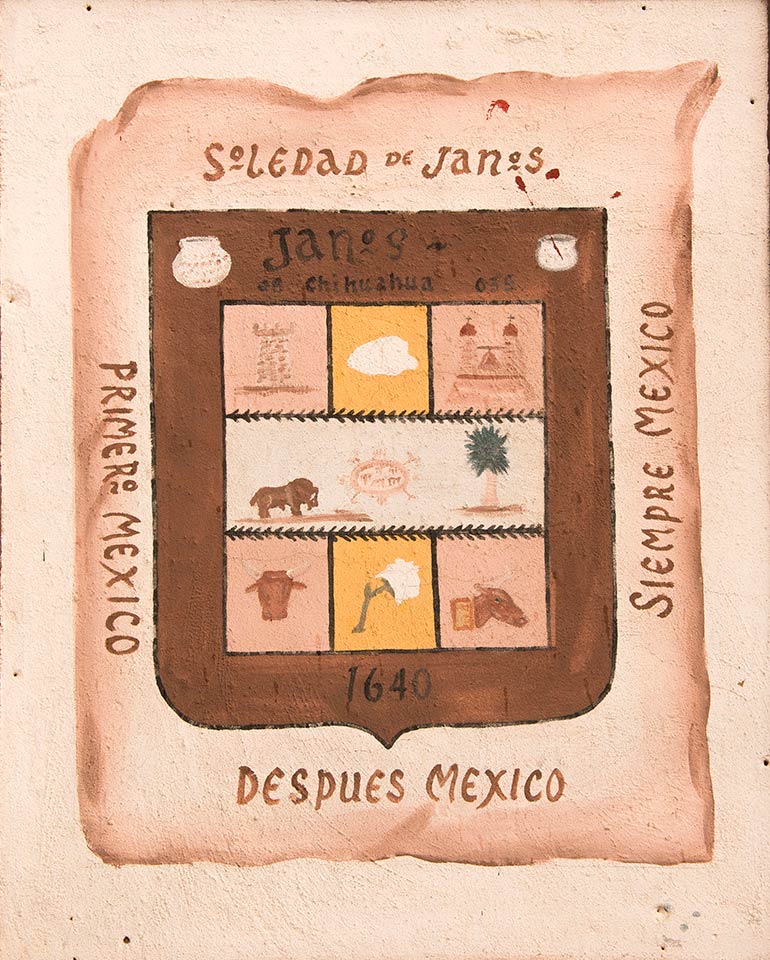 SoLEDAD DE JANoS
Janos
chihuahua
PRIMERo MEXICO
SIEMPRE MEXICO
1640
DESPUES MEXICO